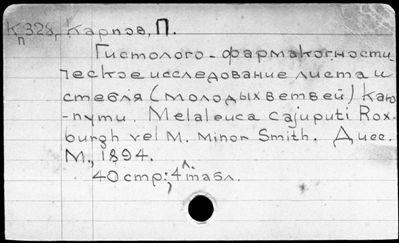 К 328, Карпов, П.
п
Гистолого-фармакогности-
ческое исследование листа и
стебля (молодых ветвей) Каю-
-пути. Melaleuca Cajuputi Rox-
burgh vel M. Minor Smith. Дисс.
М., 1894.
40 стр.; 4 л. табл.